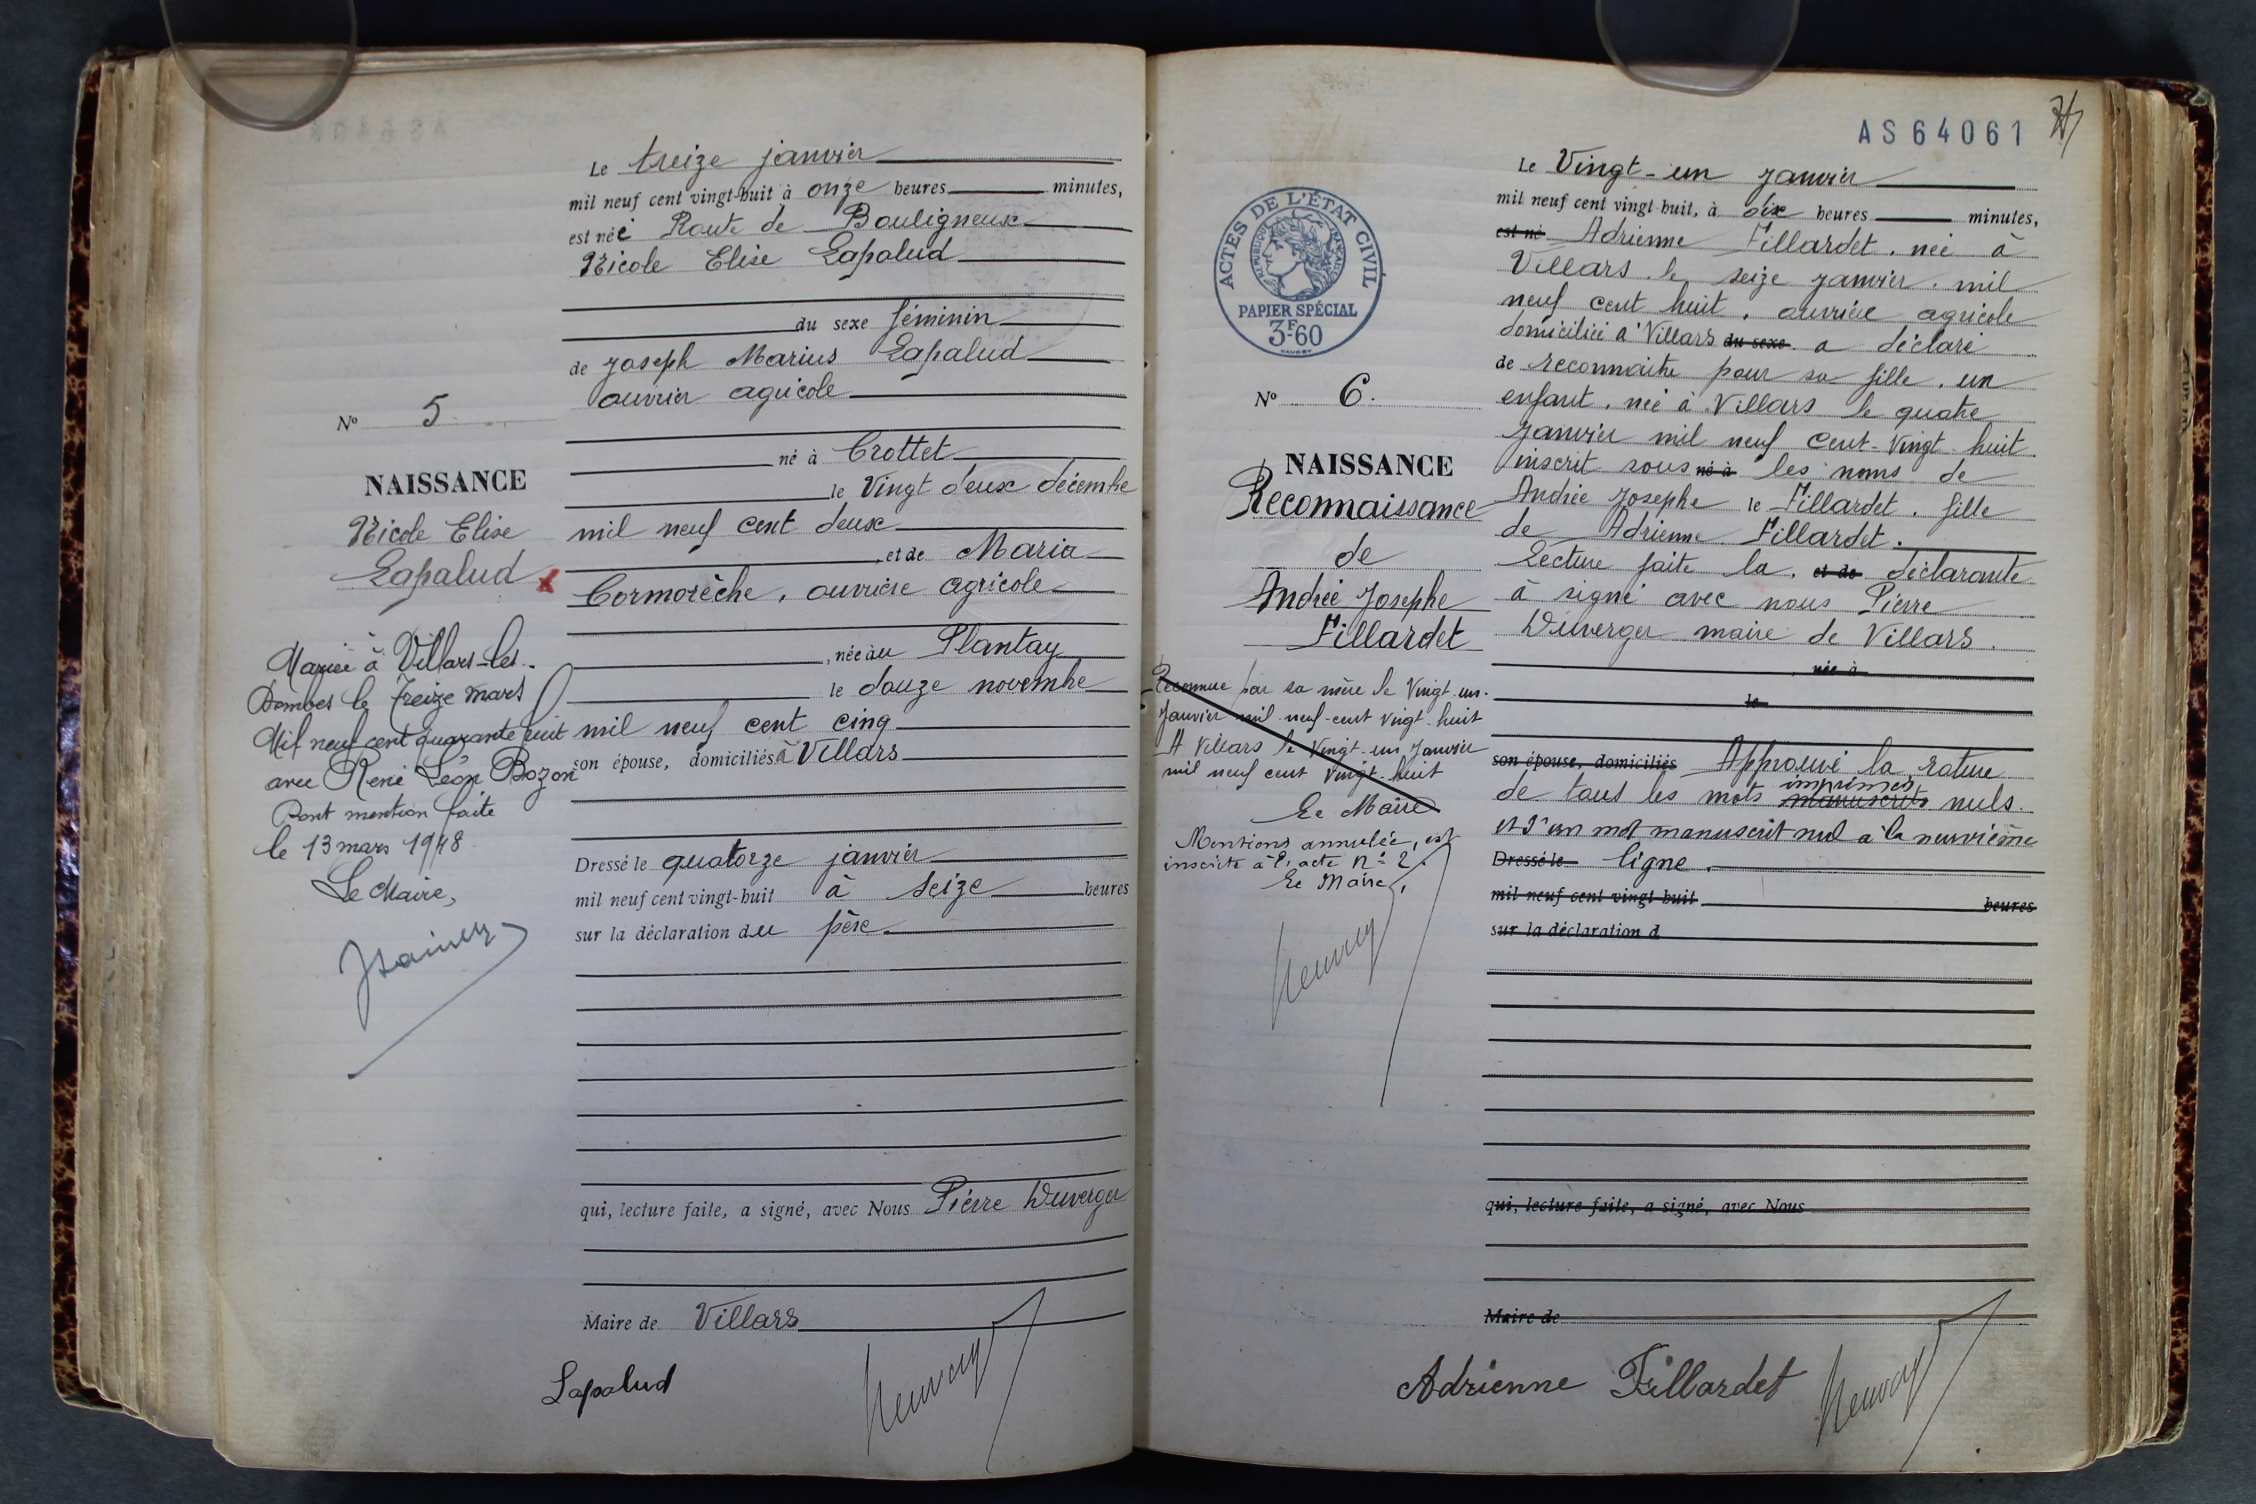 Le treize janvier
mil neuf cent vingt-huit à onze heures minutes,
est née Route de Bouligneux
Nicole Elise Lapalud
du sexe féminin
de Joseph Marius Lapalud
ouvrier agricole
N° 5
né à Crottet
NAISSANCE
le Vingt deux décembre
Nicole Elise
mil neuf cent deux
Lapalud x
et de Maria
Cormorèche, ouvrière agricole
, née au Plantay
le douze novembre
mil neuf cent cinq
son épouse, domiciliés à Villars
Mariée à Villars-les-
Dombes le Treize mars
Mil neuf cent quarante huit
avec René Léon Bozon
Dont mention faite
le 13 mars 1948
Le Maire,
Dressé le quatorze janvier
mil neuf cent vingt-huit à seize heures
sur la déclaration du père
qui, lecture faite, a signé, avec Nous Pierre Duverger
Maire de Villars
Lapalud
AS64061
ACTES DE L'ÉTAT CIVIL
RÉPUBLIQUE FRANÇAISE
PAPIER SPÉCIAL
3F60
N° 6.
NAISSANCE
Reconnaissance
de
Andrée Josephe
Fillardet
Reconnue par sa mère le Vingt-un.
Janvier mil-neuf-cent vingt-huit
A Villars le Vingt-un Janvier
mil neuf cent Vingt-huit
Le Maire
Mentions annulée, est
inscrite à l'acte N° 2.
Le Maire,
Le Vingt-un janvier
mil neuf cent vingt-huit, à dix heures minutes,
est né Adrienne Fillardet. née à
Villars le seize janvier. mil
neuf cent huit, ouvrière agricole
domiciliée à Villars du sexe a déclaré
de reconnaitre pour sa fille. un
enfant. née à Villars le quatre
Janvier mil neuf cent-vingt-huit
inscrit sous né à les noms de
Andrée Josephe le Fillardet. fille
de Adrienne Fillardet.
Lecture faite la. et de déclarante
à signé avec nous Pierre
Duverger maire de Villars.
, née à
le
son épouse, domiciliés Approuvé la rature
imprimés
de tous les mots manuscrits nuls.
et d'un mot manuscrit nul à la neuvième
Dressé le ligne.
mil neuf cent vingt-huit heures
sur la déclaration d
qui, lecture faite, a signé, avec Nous
Maire de
Adrienne Fillardet